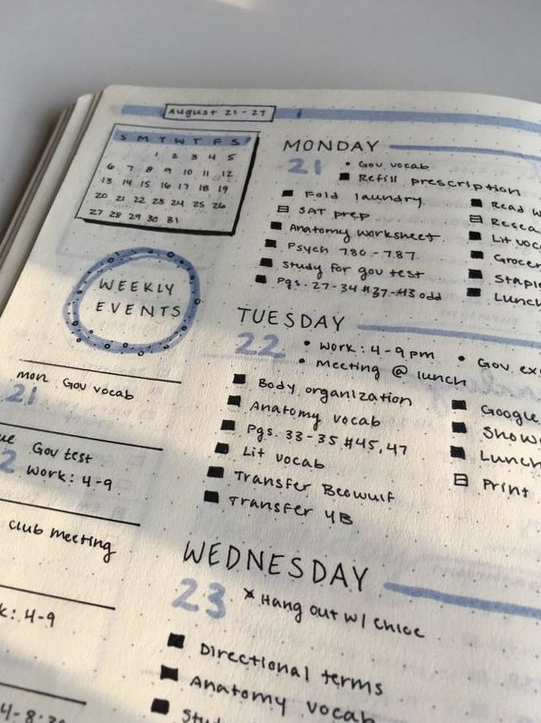 August 21-27
S M T W T F S
1 2 3 4 5
6 7 8 9 10 11 12
13 14 15 16 17 18 19
20 21 22 23 24 25 26
27 28 29 30 31
WEEKLY
EVENTS
mon Gov vocab
21
Gov test
work: 4-9
club meeting
4-9
4-8:30
MONDAY
21
• Gov vocab
Refill prescription
Fold laundry
SAT prep
Anatomy worksheet
Psych 780-787
Study for gov test
Pgs. 27-34 #37-43 odd
Read
Lit voc
Lunch
TUESDAY
22
• work: 4-9pm
• Meeting @ lunch
• Gov. ex
Body organization
Anatomy vocab
Pgs. 33-35 #45,47
Lit vocab
Transfer Beowulf
Transfer 4B
Google
Lunch
Print
WEDNESDAY
23
* Hang out w/ Chloe
Directional terms
Anatomy vocab